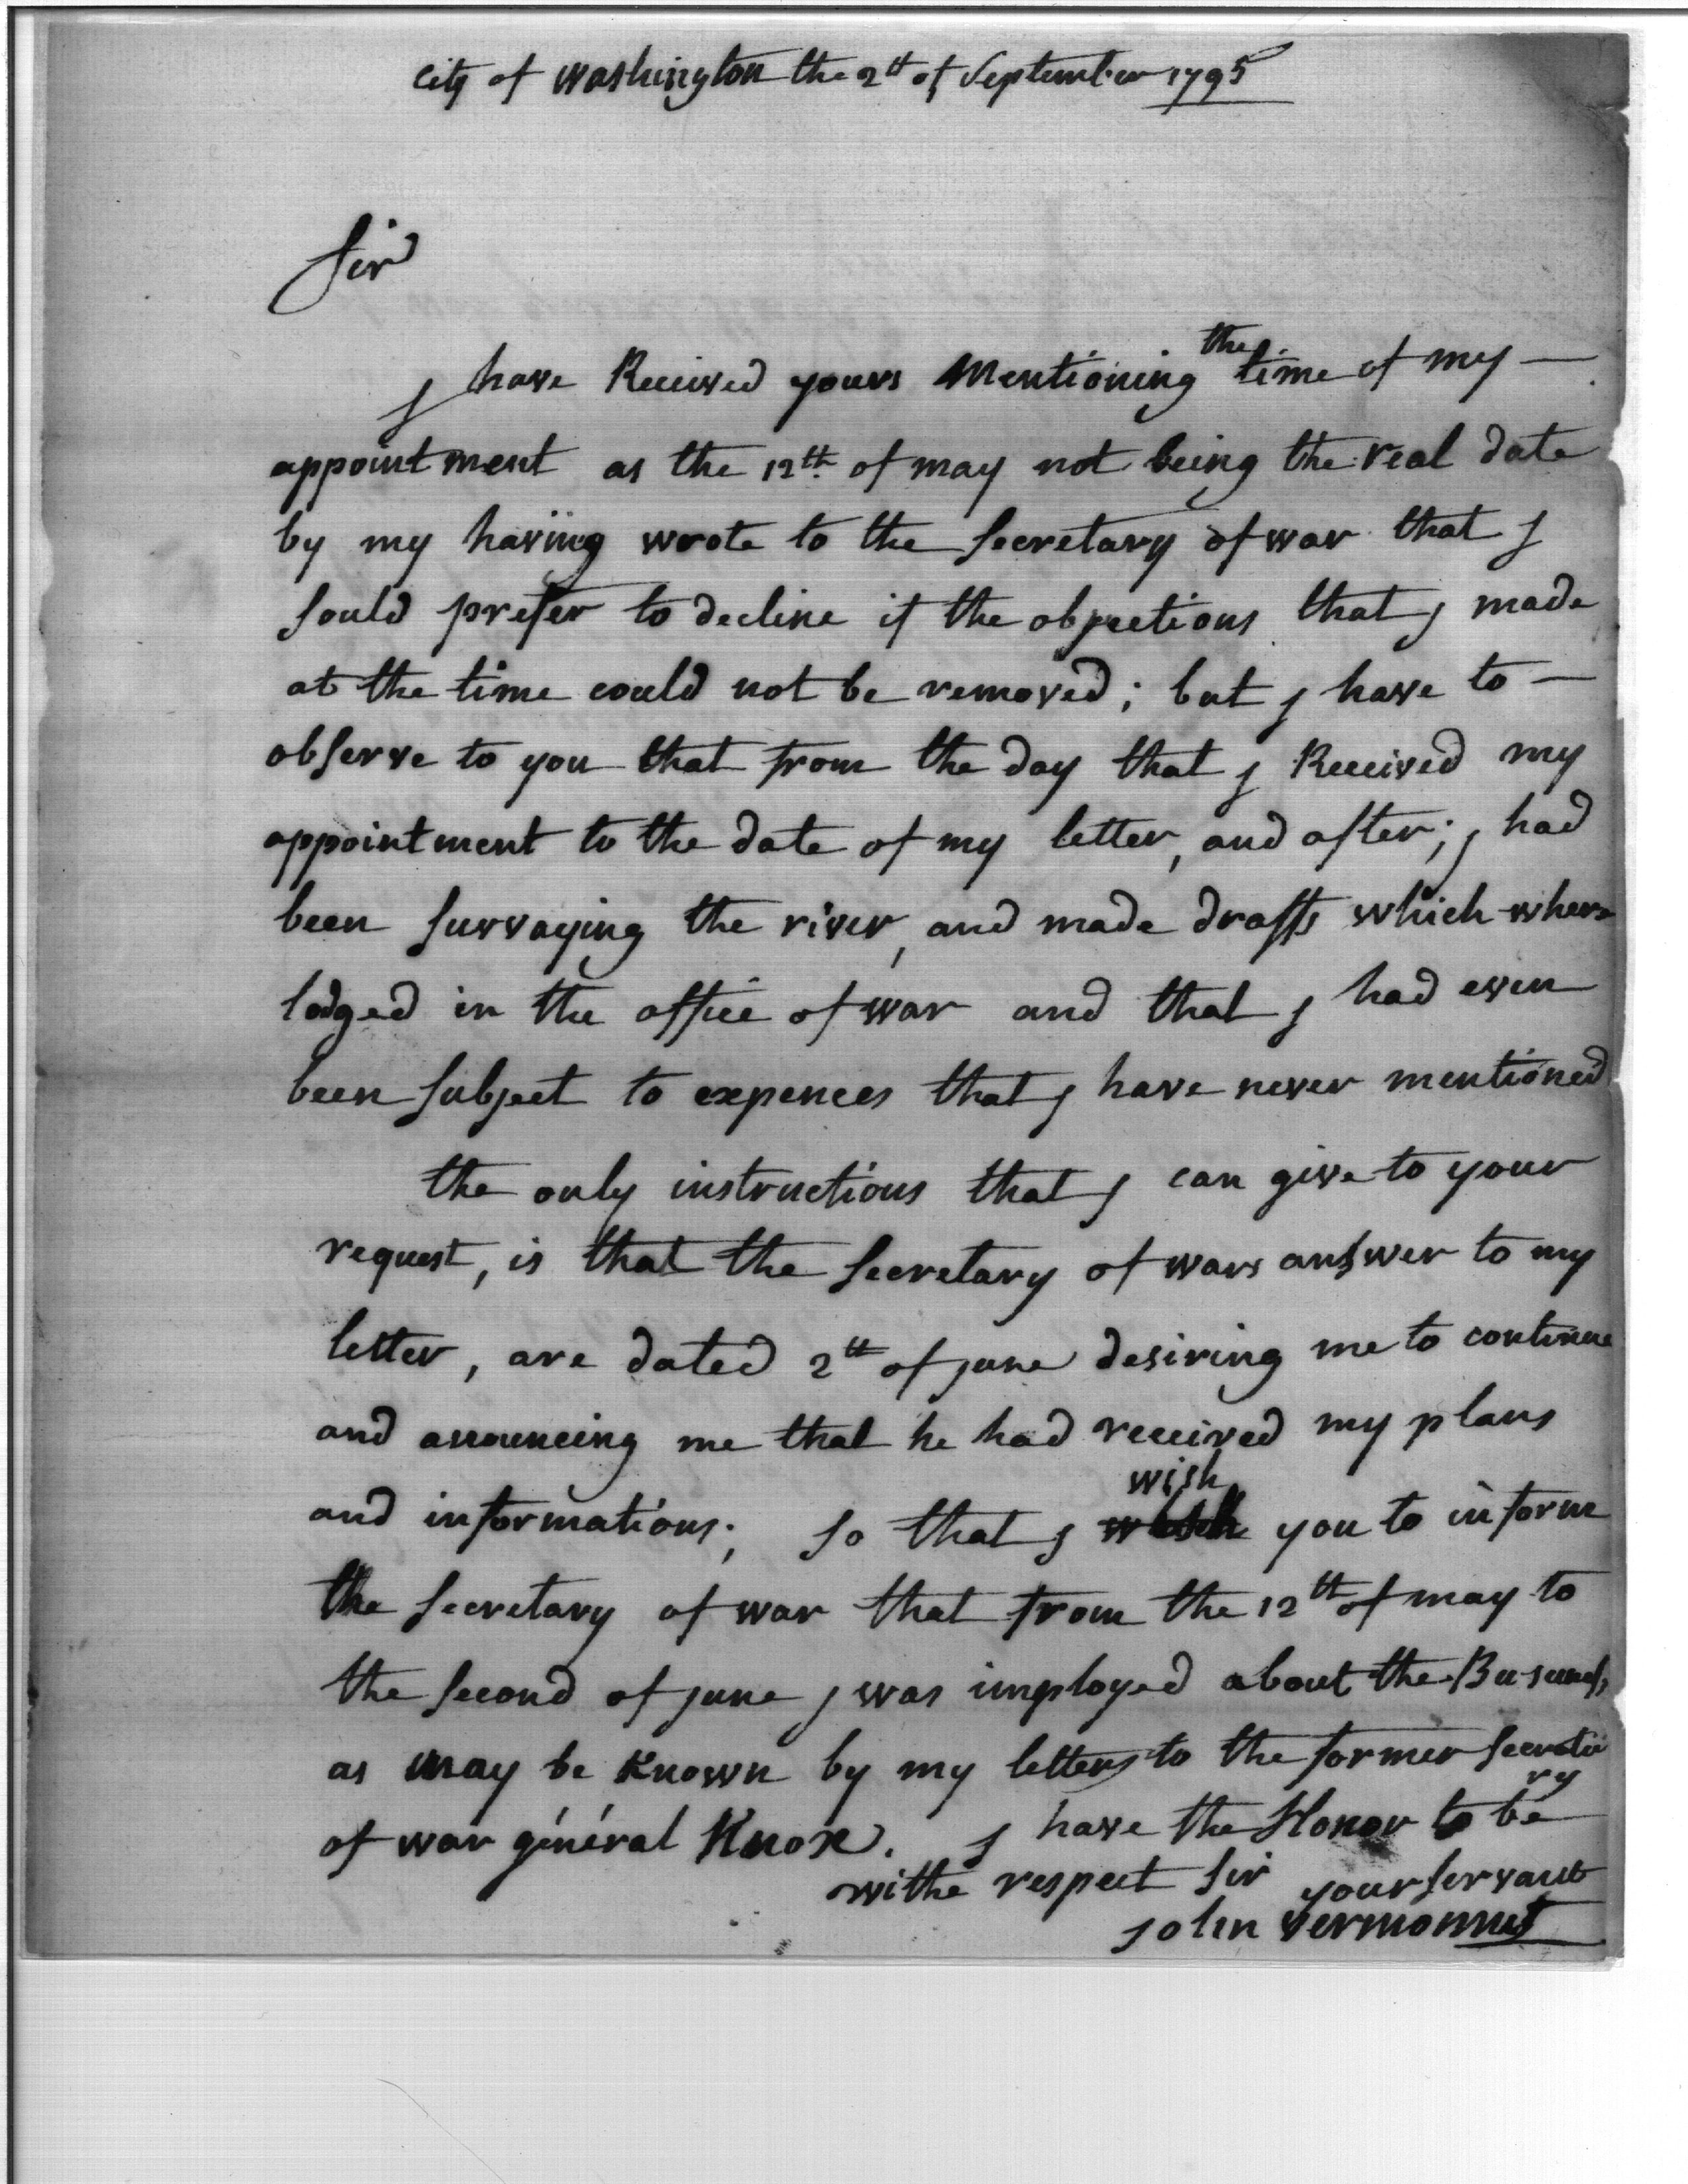 city of washington the 2th of September 1795
Sir
j have Received yours Mentioning the time of my —
appointment as the 12th of may not being the real date
by my having wrote to the Secretary of war that j
Sould prefer to decline if the objections that j made
at the time could not be removed; but j have to —
observe to you that from the day that j Received my
appointment to the date of my letter, and after; j had
been Survaying the river, and made drafts which where
lodged in the office of war and that j had even
been Subject to expences that j have never mentioned
the only instructions that j can give to your
request, is that the Secretary of wars answer to my
letter, are dated 2th of june desiring me to continue
and anouncing me that he had received my plans
and informations; So that j wish you to inform
the Secretary of war that from the 12th of may to
the Second of june j was imployed about the Busuness
as may be Known by my letters to the former Secretary
of war général Knox. j have the Honor to be
withe respect Sir your Servant
john vermonnet